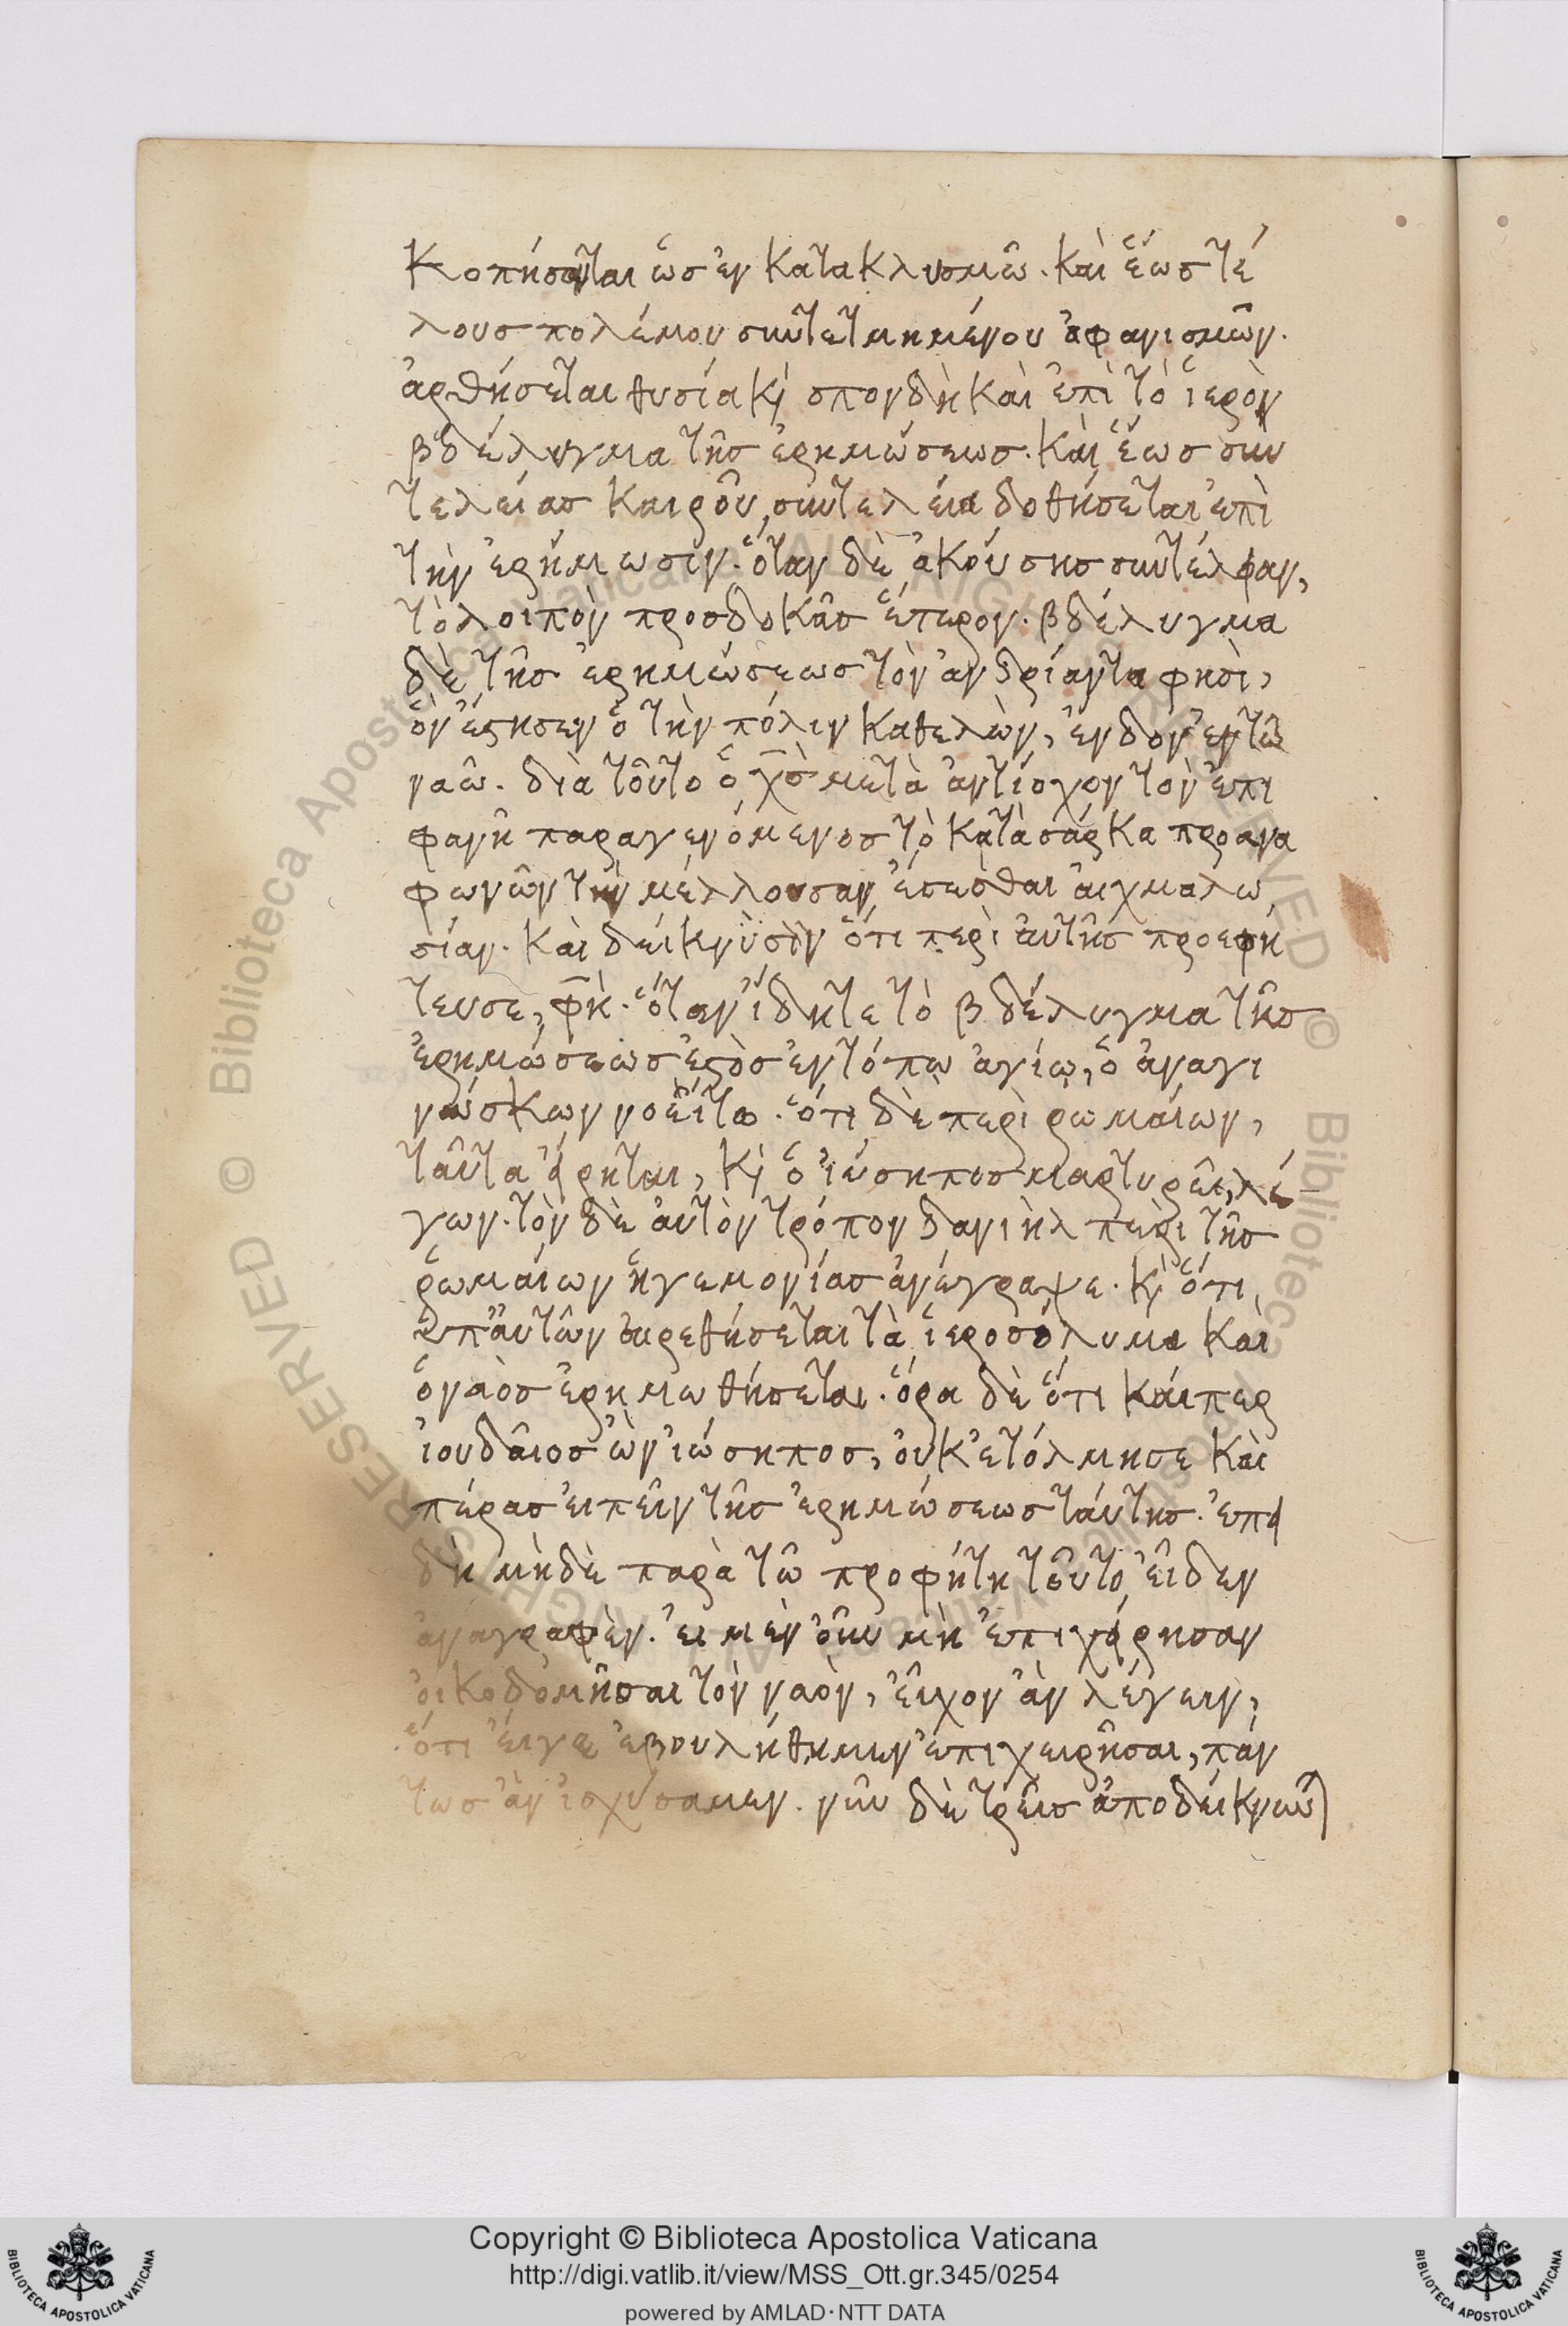 κοπήσονται ὡς ἐν κατακλυσμῶ. καὶ ἕως τέ
λους πολέμου συντετμημένου ἀφανισμῶν.
ἀρθήσεται θυσία κ̀ σπονδὴ καὶ ἐπὶ τὸ ἱερὸν
βδέλυγμα τῆς ἐρημώσεως. καὶ ἕως συν
τελείας καιροῦ, συντέλεια δοθήσεται ἐπὶ
τὴν ἐρήμωσιν. ὅταν δὲ ἀκούσης συντέλειαν,
τὸ λοιπὸν προσδοκᾶς ἕτερον. βδέλυγμα
δὲ τῆς ἐρημώσεως τὸν ἀνδριάντα φησὶ,
ὃν ἔστησεν ὁ τὴν πόλιν καθελὼν, ἔνδον ἐν τῶ
ναῶ. διὰ τοῦτο ὁ χς̀ μετὰ ἀντίοχον τὸν ἐπι
φανῆ παραγενόμενος τὸ κατὰ σάρκα προανα
φωνῶν τὴν μέλλουσαν ἔσεσθαι αἰχμαλω
σίαν. καὶ δείκνὺσὶν ὅτι περὶ αὐτῆς προεφή
τευσε, φὴ. ὅταν ἴδητε τὸ βδέλυγμα τῆς
ἐρημώσεως ἑστὸς ἐν τόπω ἁγίω, ὁ ἀναγι
νώσκων νοείτω. ὅτι δὲ περὶ ρωμαίων,
ταῦτα εἴρηται, κ̀ ὁ ἰώσηπος μαρτυρεῖ, λέ
γων. τὸν δὲ αὐτὸν τρόπον δανιὴλ περὶ τῆς
ῥωμαίων ἡγεμονίας ἀνέγραψε. κ̀ ὅτι
ὑπ' αὐτῶν αἱρεθήσεται τὰ ἱεροσόλυμα καὶ
ὁ ναὸς ἐρημωθήσεται. ὅρα δὲ ὅτι καίπερ
ἰουδαῖος ὢν ἰώσηπος, οὐκ ἐτόλμησε καὶ
πέρας εἰπεῖν τῆς ἐρημώσεως ταύτης. ἐπει
δὴ μὴδὲ παρὰ τῶ προφήτη τοῦτο εἶδεν
ἀναγραφὲν. εἰ μὲν οὖν μὴ ἐπιχείρησαν
οἰκοδομῆσαι τὸν ναὸν, εἶχον ἂν λέγειν,
ὅτι εἴγε ἐβουλήθημεν ἐπιχειρῆσαι, πάν
τως ἂν ἰσχύσαμεν. νῦν δὲ τρεῖς ἀποδείκνυν)
Copyright © Biblioteca Apostolica Vaticana
http://digi.vatlib.it/view/MSS_Ott.gr.345/0254
powered by AMLAD·NTT DATA